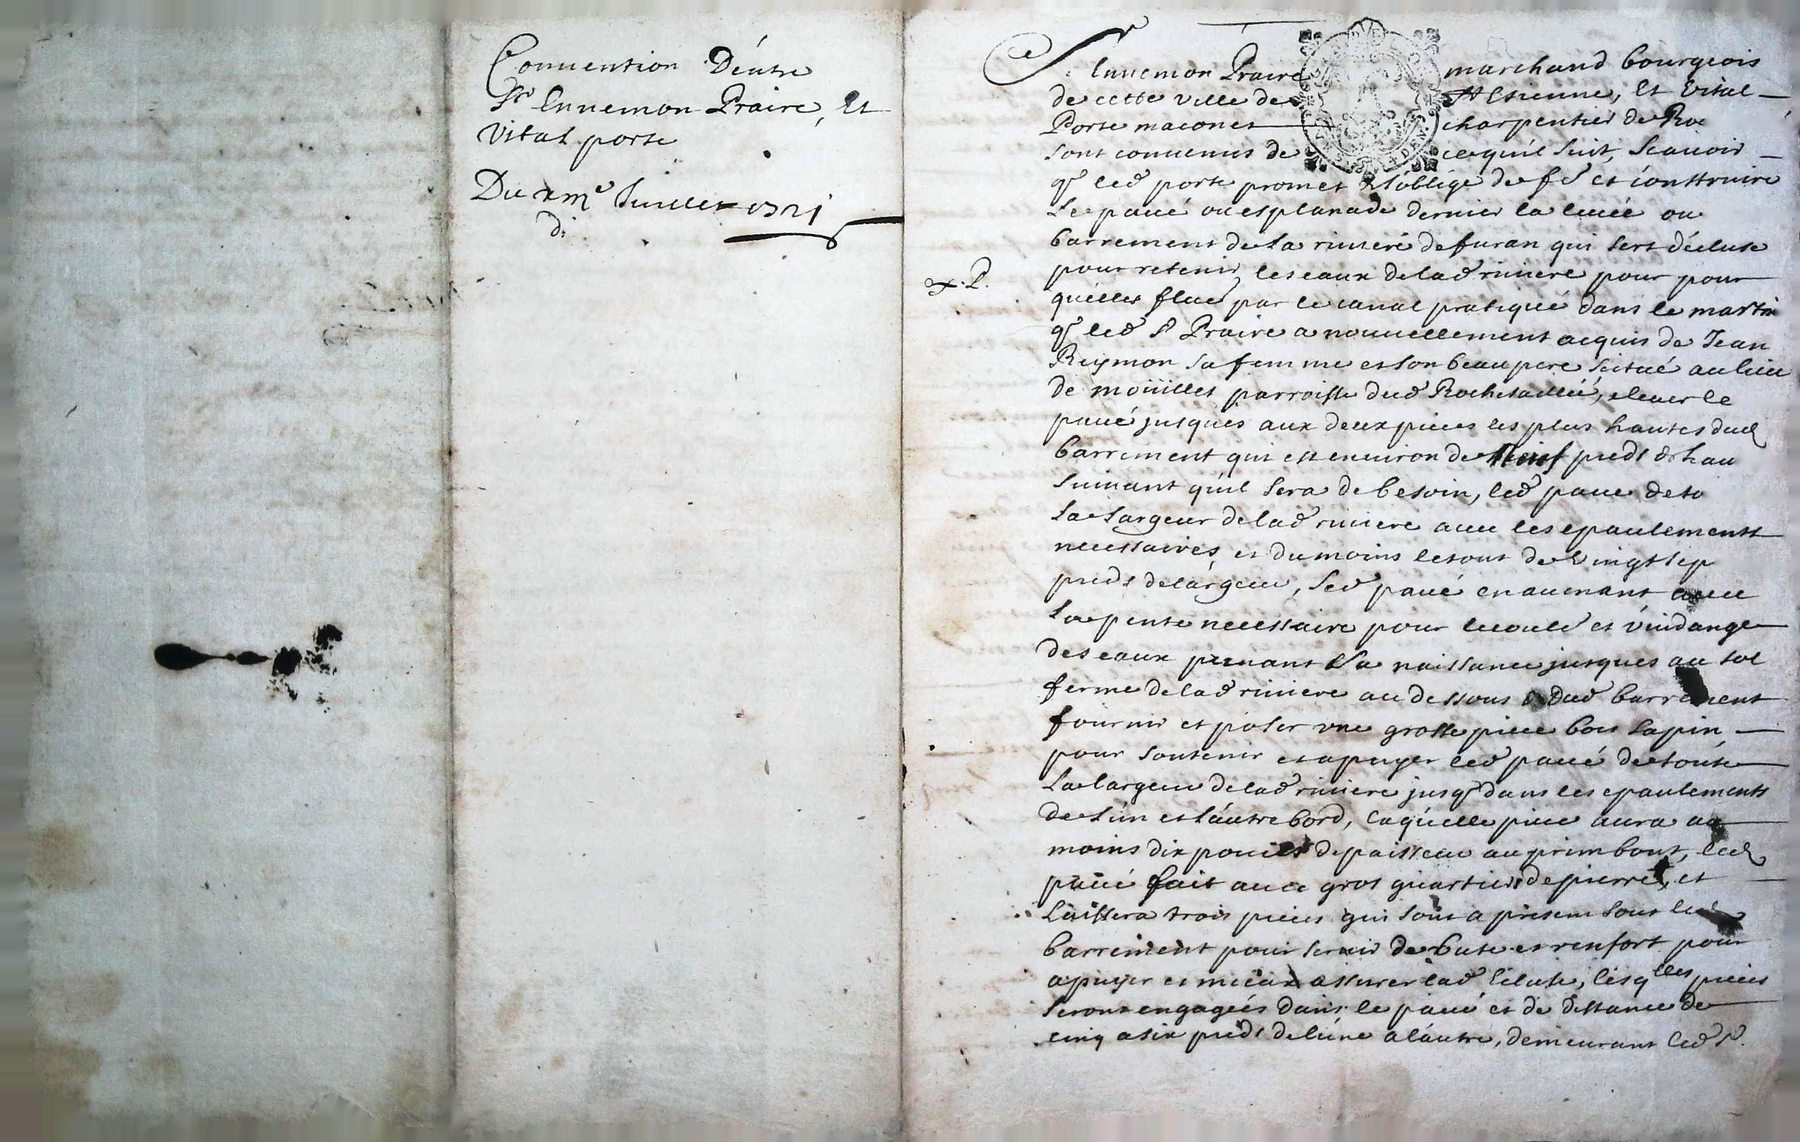 Convention D'éntre
Sr Ennemon Praire, Et
Vital porte
Du xme Juillet 1721
d:
x. P.
Sr Ennemon Praire marchand bourgeois
de cette ville de St Estienne, Et Vital
Porte macon et charpentier de Roc
sont convenus de ce qu'il suit, Scavoir
q led porte promet & s'oblige de fe et construire
Le pavé ou esplanade dernier la levée ou
barrement de la riviere de furan qui sert d'écluse
pour retenir les eaux de lad riviere pour pour
quélles flue par le canal pratiqué dans le martin
q led Sr Praire a nouvellement acquis de Jean
Reymon sa femme et son beau pere, scitué au lieu
de moüillet parroisse dud Rochetaillée, elever le
pavé jusques aux deux pieces les plus hautes dud
barrement qui est environ de neuf pieds d'hau
suivant qu'il sera de besoin, led pavé de to
La Largeur de lad riviere avec les epaulements
necessaires et du moins le tout de vingt sep
pieds de lárgeur, led pavé en avenant avec
La pente necessaire pour lecoule et vuidange
des eaux prenant sa naissance jusques au sol
ferme de lad riviere au dessous dud barrement
fournir et poser une grosse piece bois sapin
pour soutenir et apuyer led pavé de toute
La largeur de lad riviere jusq dans les epaulements
de l'un et l'autre bord, laquelle piece aura au
moins dix pouces d'epaisseur au prim bout, led
pavé fait avec gros quartiers de pierre, et
Laissera trois pieces qui sont a present sous led
barrement pour servir de bute et renfort pour
apuyer et mieux assurer lad Ecluse, lesqlles pieces
seront engagées dans le pavé et de distance de
cinq a six pieds de l'une a l'autre, demeurant led Sr.